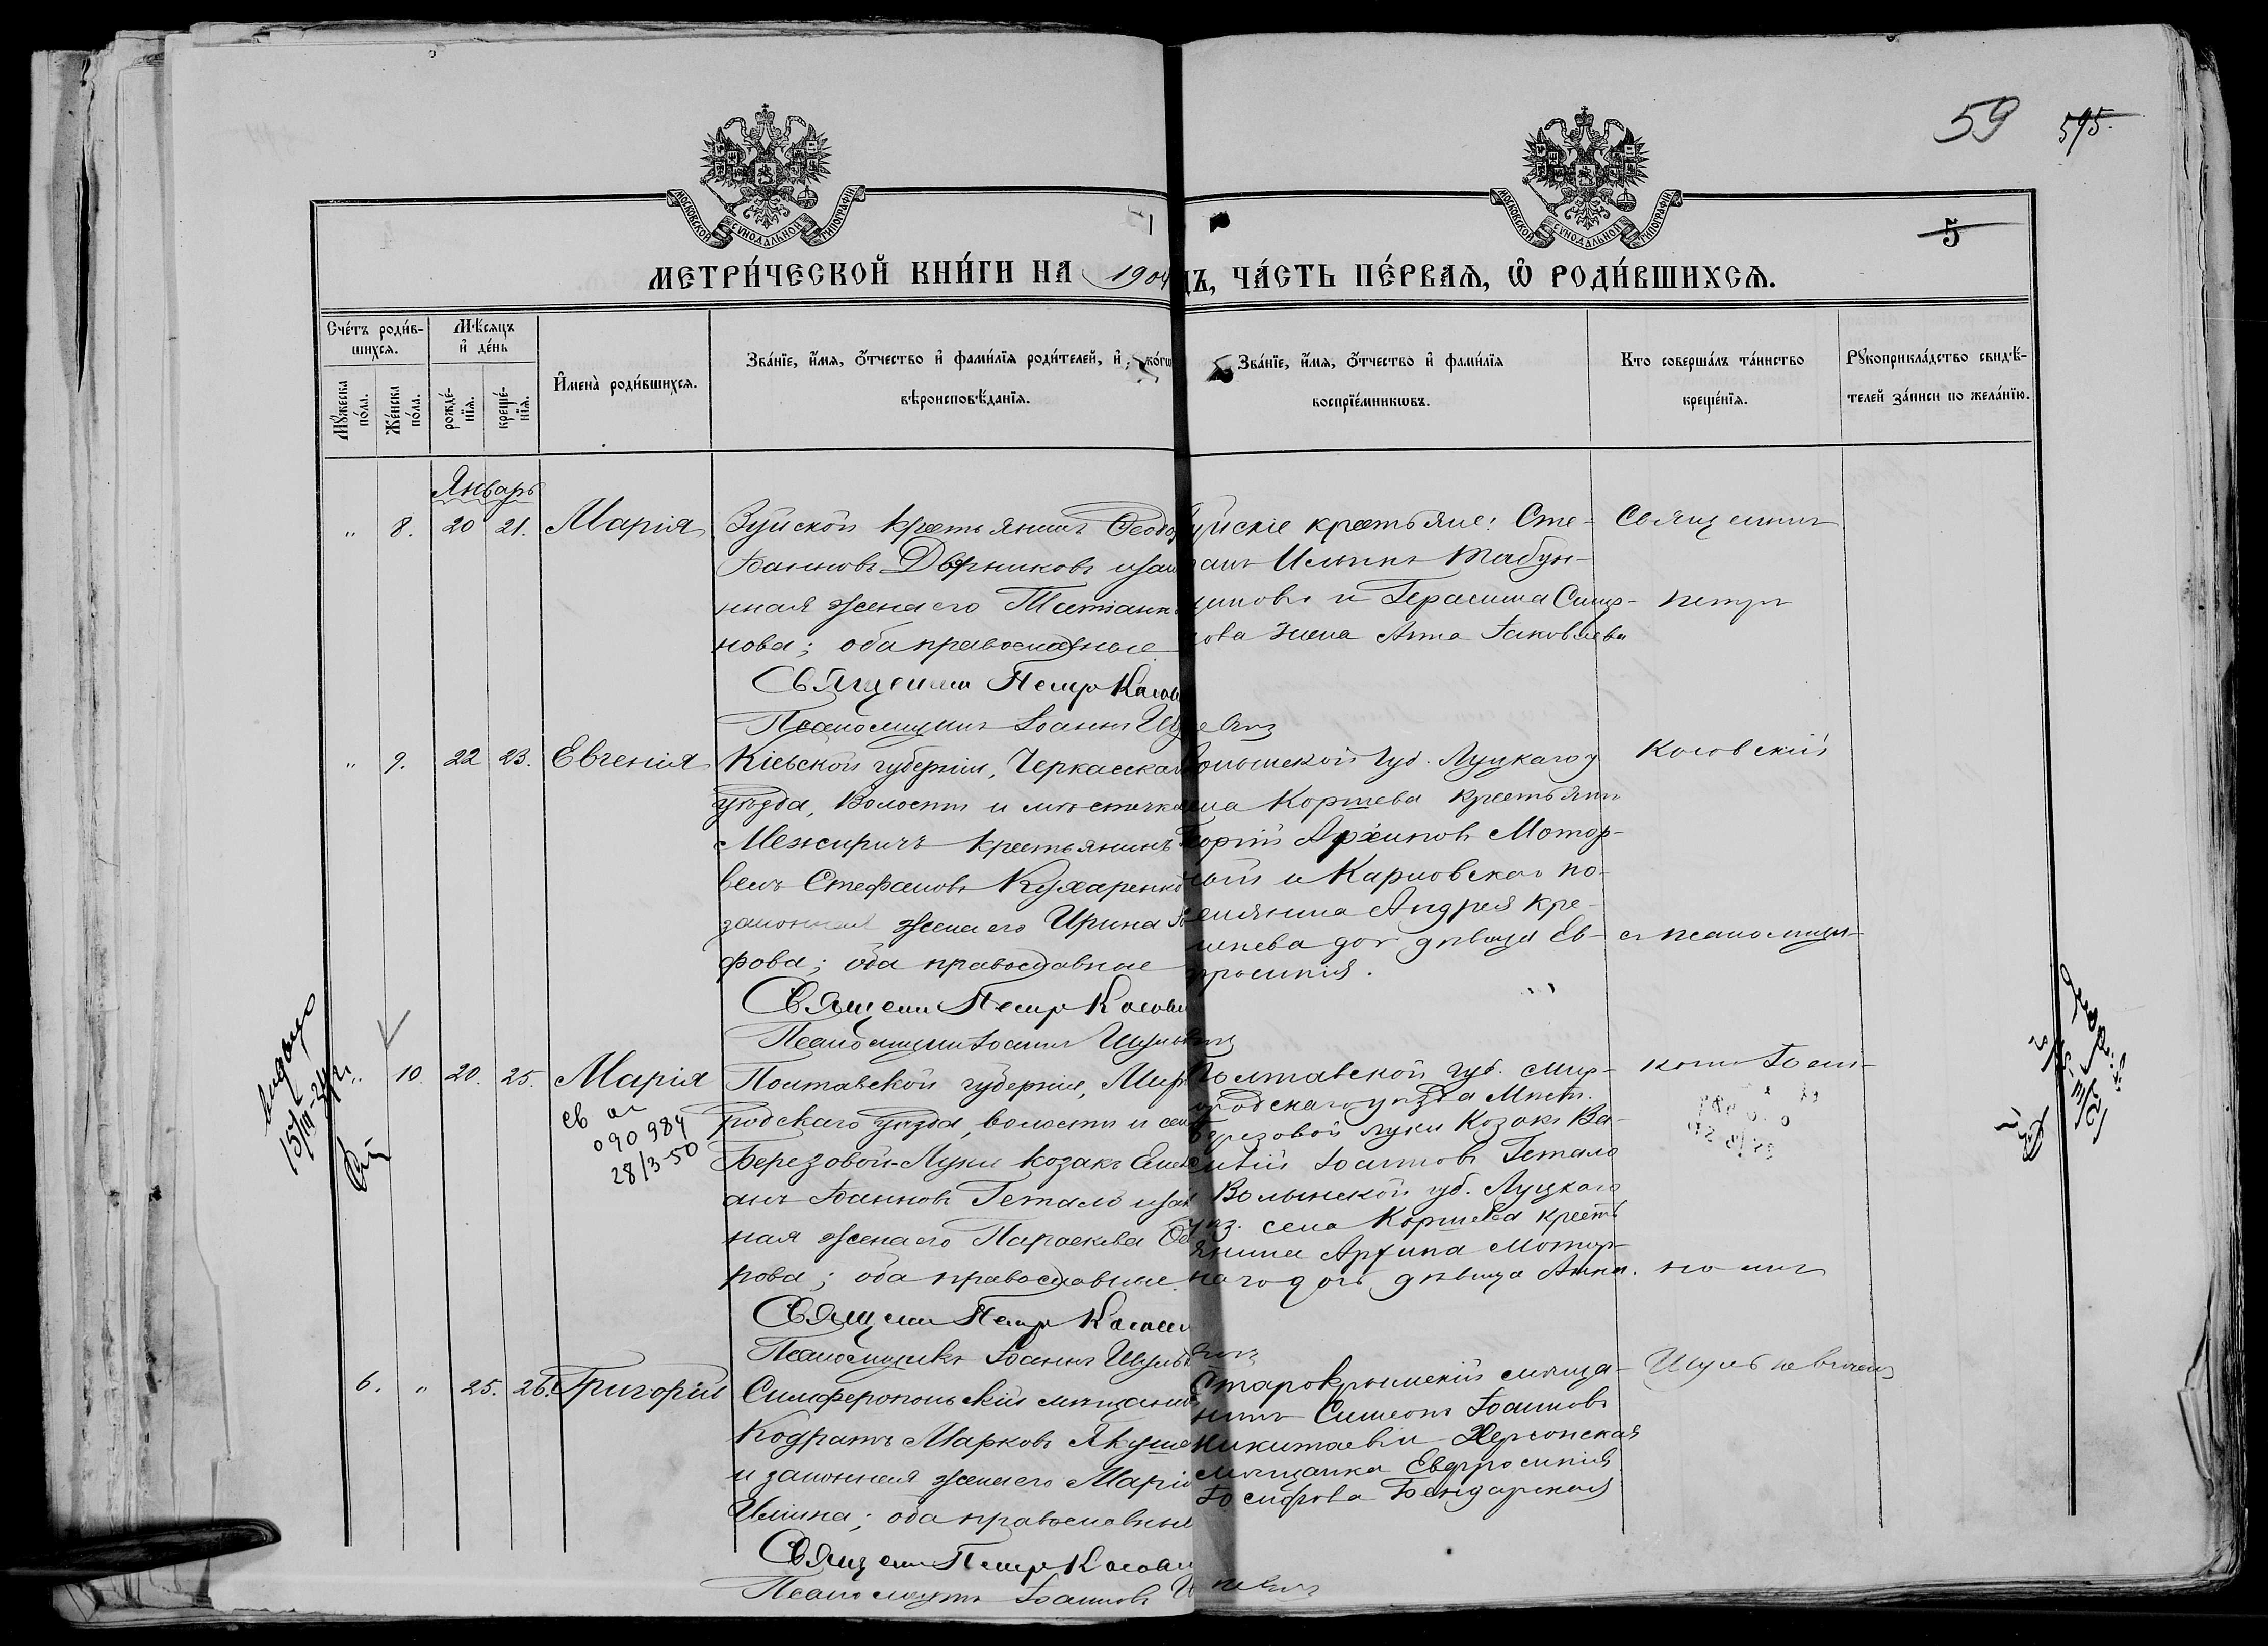 59 595.
МОСКОВСКОЙ СѴНОДАЛЬНОЙ ТИПОГРАФІИ
МОСКОВСКОЙ СѴНОДАЛЬНОЙ ТИПОГРАФІИ
5
МЕТРИ́ЧЕСКОЙ КНИ́ГИ НА 1904 ДЪ, ЧА́СТЬ ПЕ́РВАЯ, Ѡ РОДИ́ВШИХСЯ.
Сче́тъ роди́в-
шихся.
Мꙋ́жеска по́ла.
Же́нска по́ла.
Мѣ́сяцъ и де́нь
рожде́-нїя.
креще́-нїя.
Имена̀ роди́вшихся.
Зва́нїе, и́мя, о́тчество и фами́лїя роди́телей, и
вѣроисповѣ́данїя.
Зва́нїе, и́мя, о́тчество и фами́лїя
воспрїе́мникѡвъ.
Кто соверша́лъ та́инство
креще́нїя.
Рꙋкоприкла́дство свидѣ́-
телей за́писи по жела́нїю.
Январь
" 8. 20 21. Марія
Зуйской крестьянинъ Ѳеодо
Іоанновъ Дворниковъ и зак
нная жена его Татіана
нова; оба православные
Священн Петръ Косов
Псаломщикъ Іоаннъ Шу
уйскіе крестьяне: Сте-
анъ Ильинъ Табун-
щиковъ и Герасима Смир-
нова жена Анна Іаковлева
Священникъ
Петръ
" 9. 22 23. Евгенія
Кіевской губерніи, Черкасска
уѣзда, волости и мѣстечка
Межиричъ крестьянинъ
велъ Стефановъ Кухаренко
законная жена его Ирина
фова; оба православные
Священ Петръ Косов
Псаломщикъ Іоаннъ Шульпевичъ
олынской губ. Луцкаго у
села Коршева крестьянинъ
еоргій Архиповъ Мотор-
ный и Карповскаго по-
селянина Андрея Кре-
дочь дѣвица Ев-
фросинія.
Косовскій
съ псаломщи-
" 10. 20. 25. Марія
св
090984
28/3-50
15/III-
Полтавской губерніи, Мир
родскаго уѣзда, волости и сел
Березовой-Луки козакъ Емел
анъ Іоанновъ Гетало и зак
ная жена его Параскева Ѳе
рова; оба православные
Священ Петръ Косовс
Псаломщикъ Іоаннъ Шульпевичъ
Полтавской губ. Мир-
ородскаго уѣзда Мѣст.
Березовой Луки козакъ Ва-
силій Іоанновъ Гетало
Волынской губ. Луцкаго
уѣз. села Коршева кресть-
янина Архипа Мотор-
наго дочь дѣвица Анна.
комъ Іоан-
номъ
6. " 25. 26. Григорій
Симферопольскій мѣщанинъ
Кодратъ Марковъ Якуше
и законная жена его Марія
Ильина; оба православные
Священ Петръ Косовс
Псаломщикъ Іоаннъ
Старокрымскій мѣща-
нинъ Симеонъ Іоанновъ
Никитаевъ и Херсонская
мѣщанка Евфросинія
Іосифова Бондарская
Шульпевичемъ